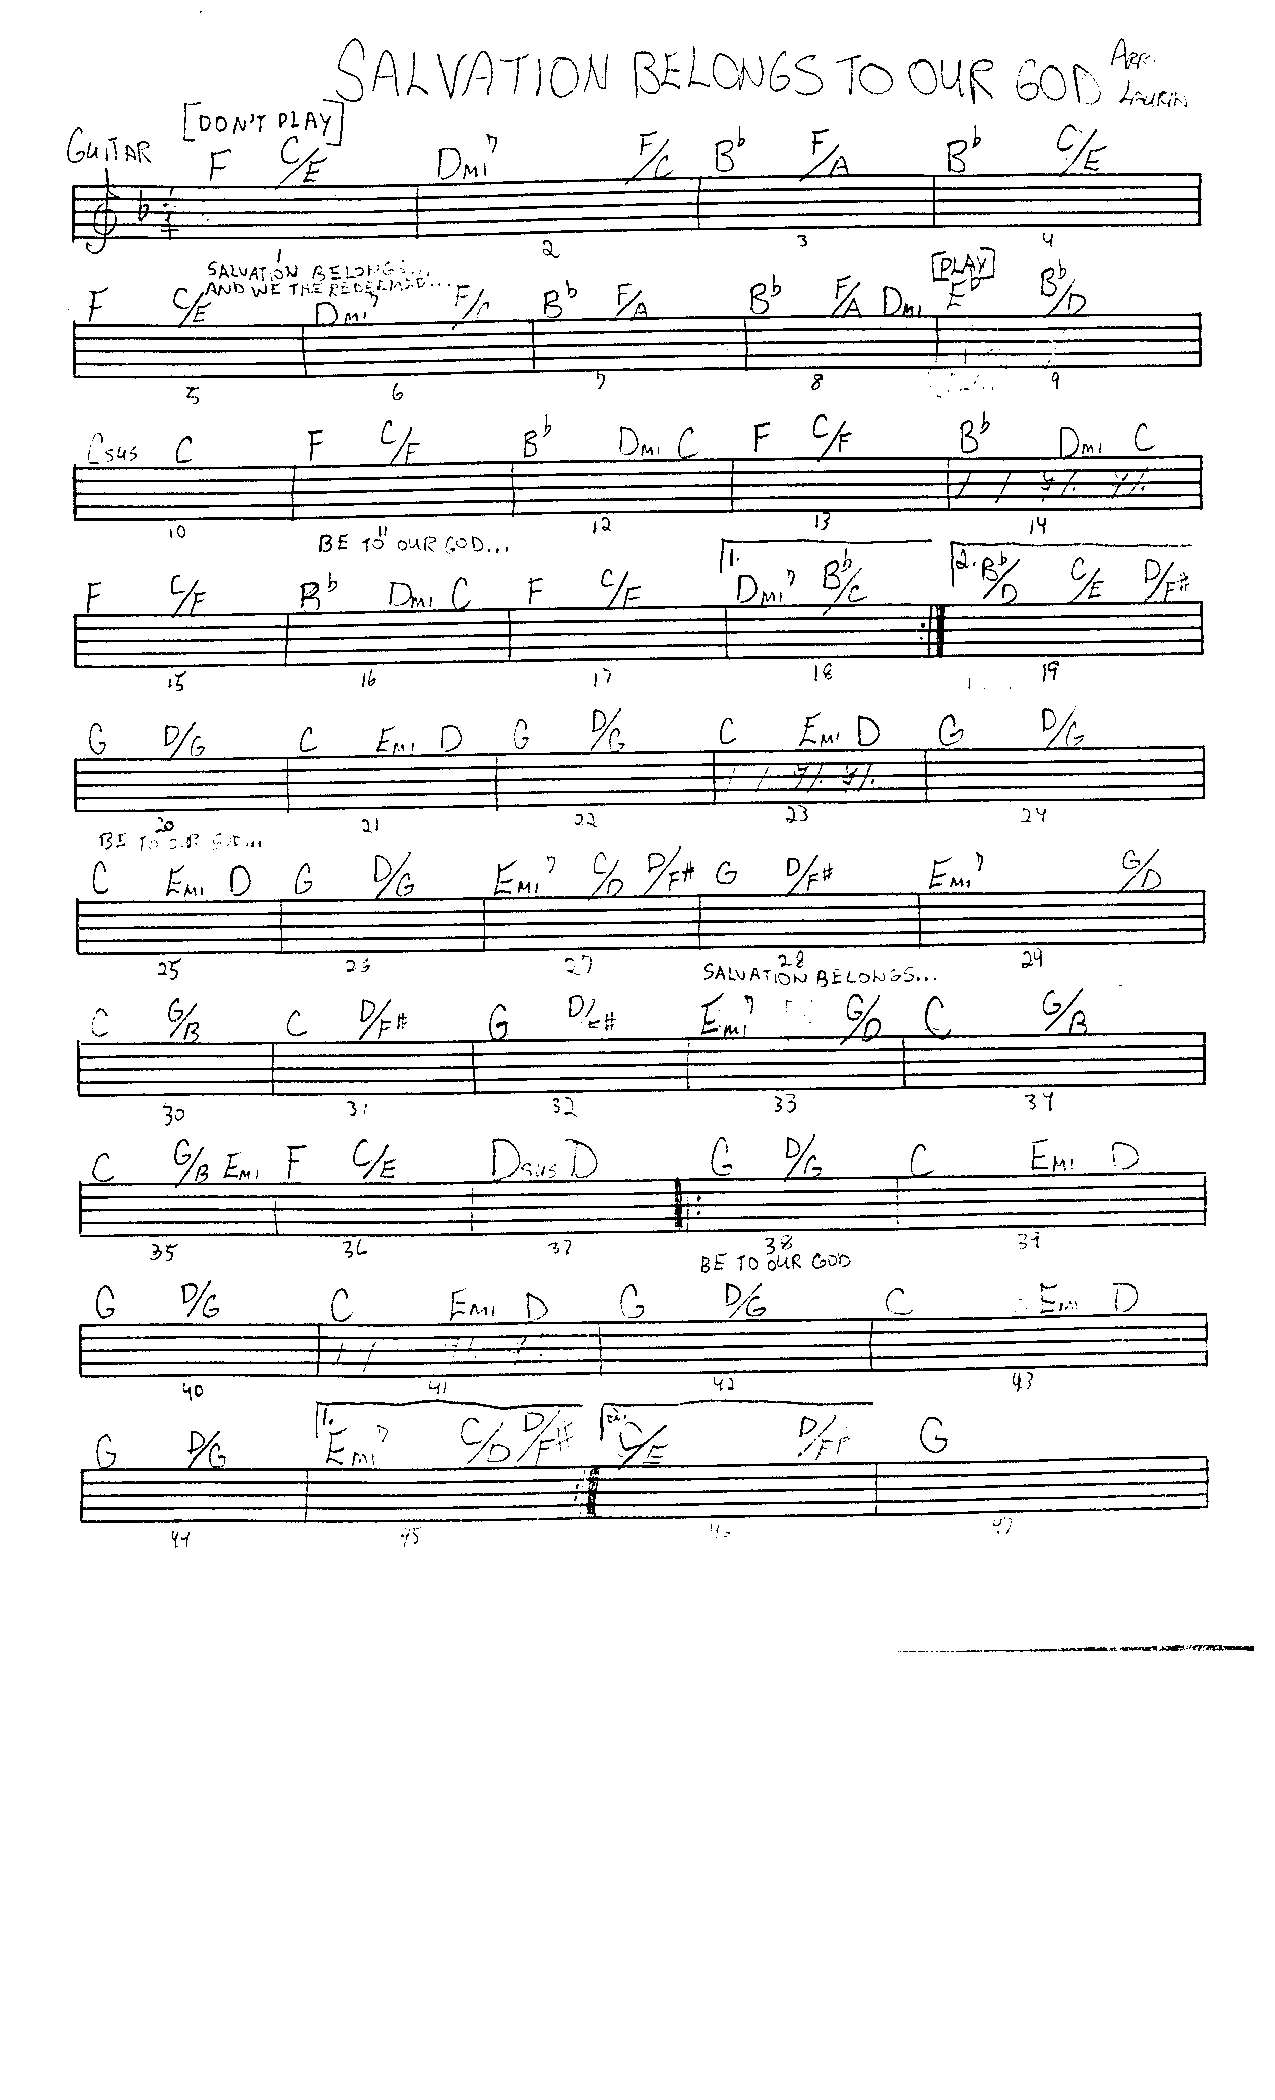 SALVATION BELONGS TO OUR GOD ARR. LAURIN
[DON'T PLAY]
GUITAR F C/E DMI7 F/C B♭ F/A B♭ C/E
1 2 3 4
SALVATION BELONGS...
AND WE THE REDEEMED...
[PLAY]
F C/E DMI7 F/C B♭ F/A B♭ F/A DMI E♭ B♭/D
5 6 7 8 9
Csus C F C/F B♭ DMI C F C/F B♭ DMI C
10 11 12 13 14
BE TO OUR GOD...
1. 2.
F C/F B♭ DMI C F C/F DMI7 B♭/C B♭/D C/E D/F#
15 16 17 18 19
G D/G C EMI D G D/G C EMI D G D/G
20 21 22 23 24
BE TO OUR GOD...
C EMI D G D/G EMI7 C/D D/F# G D/F# EMI7 G/D
25 26 27 28 29
SALVATION BELONGS...
C G/B C D/F# G D/F# EMI7 G/D C G/B
30 31 32 33 34
C G/B EMI F C/E Dsus D G D/G C EMI D
35 36 37 38 39
BE TO OUR GOD
G D/G C EMI D G D/G C EMI D
40 41 42 43
1. 2.
G D/G EMI7 C/D D/F# C/E D/F# G
44 45 46 47